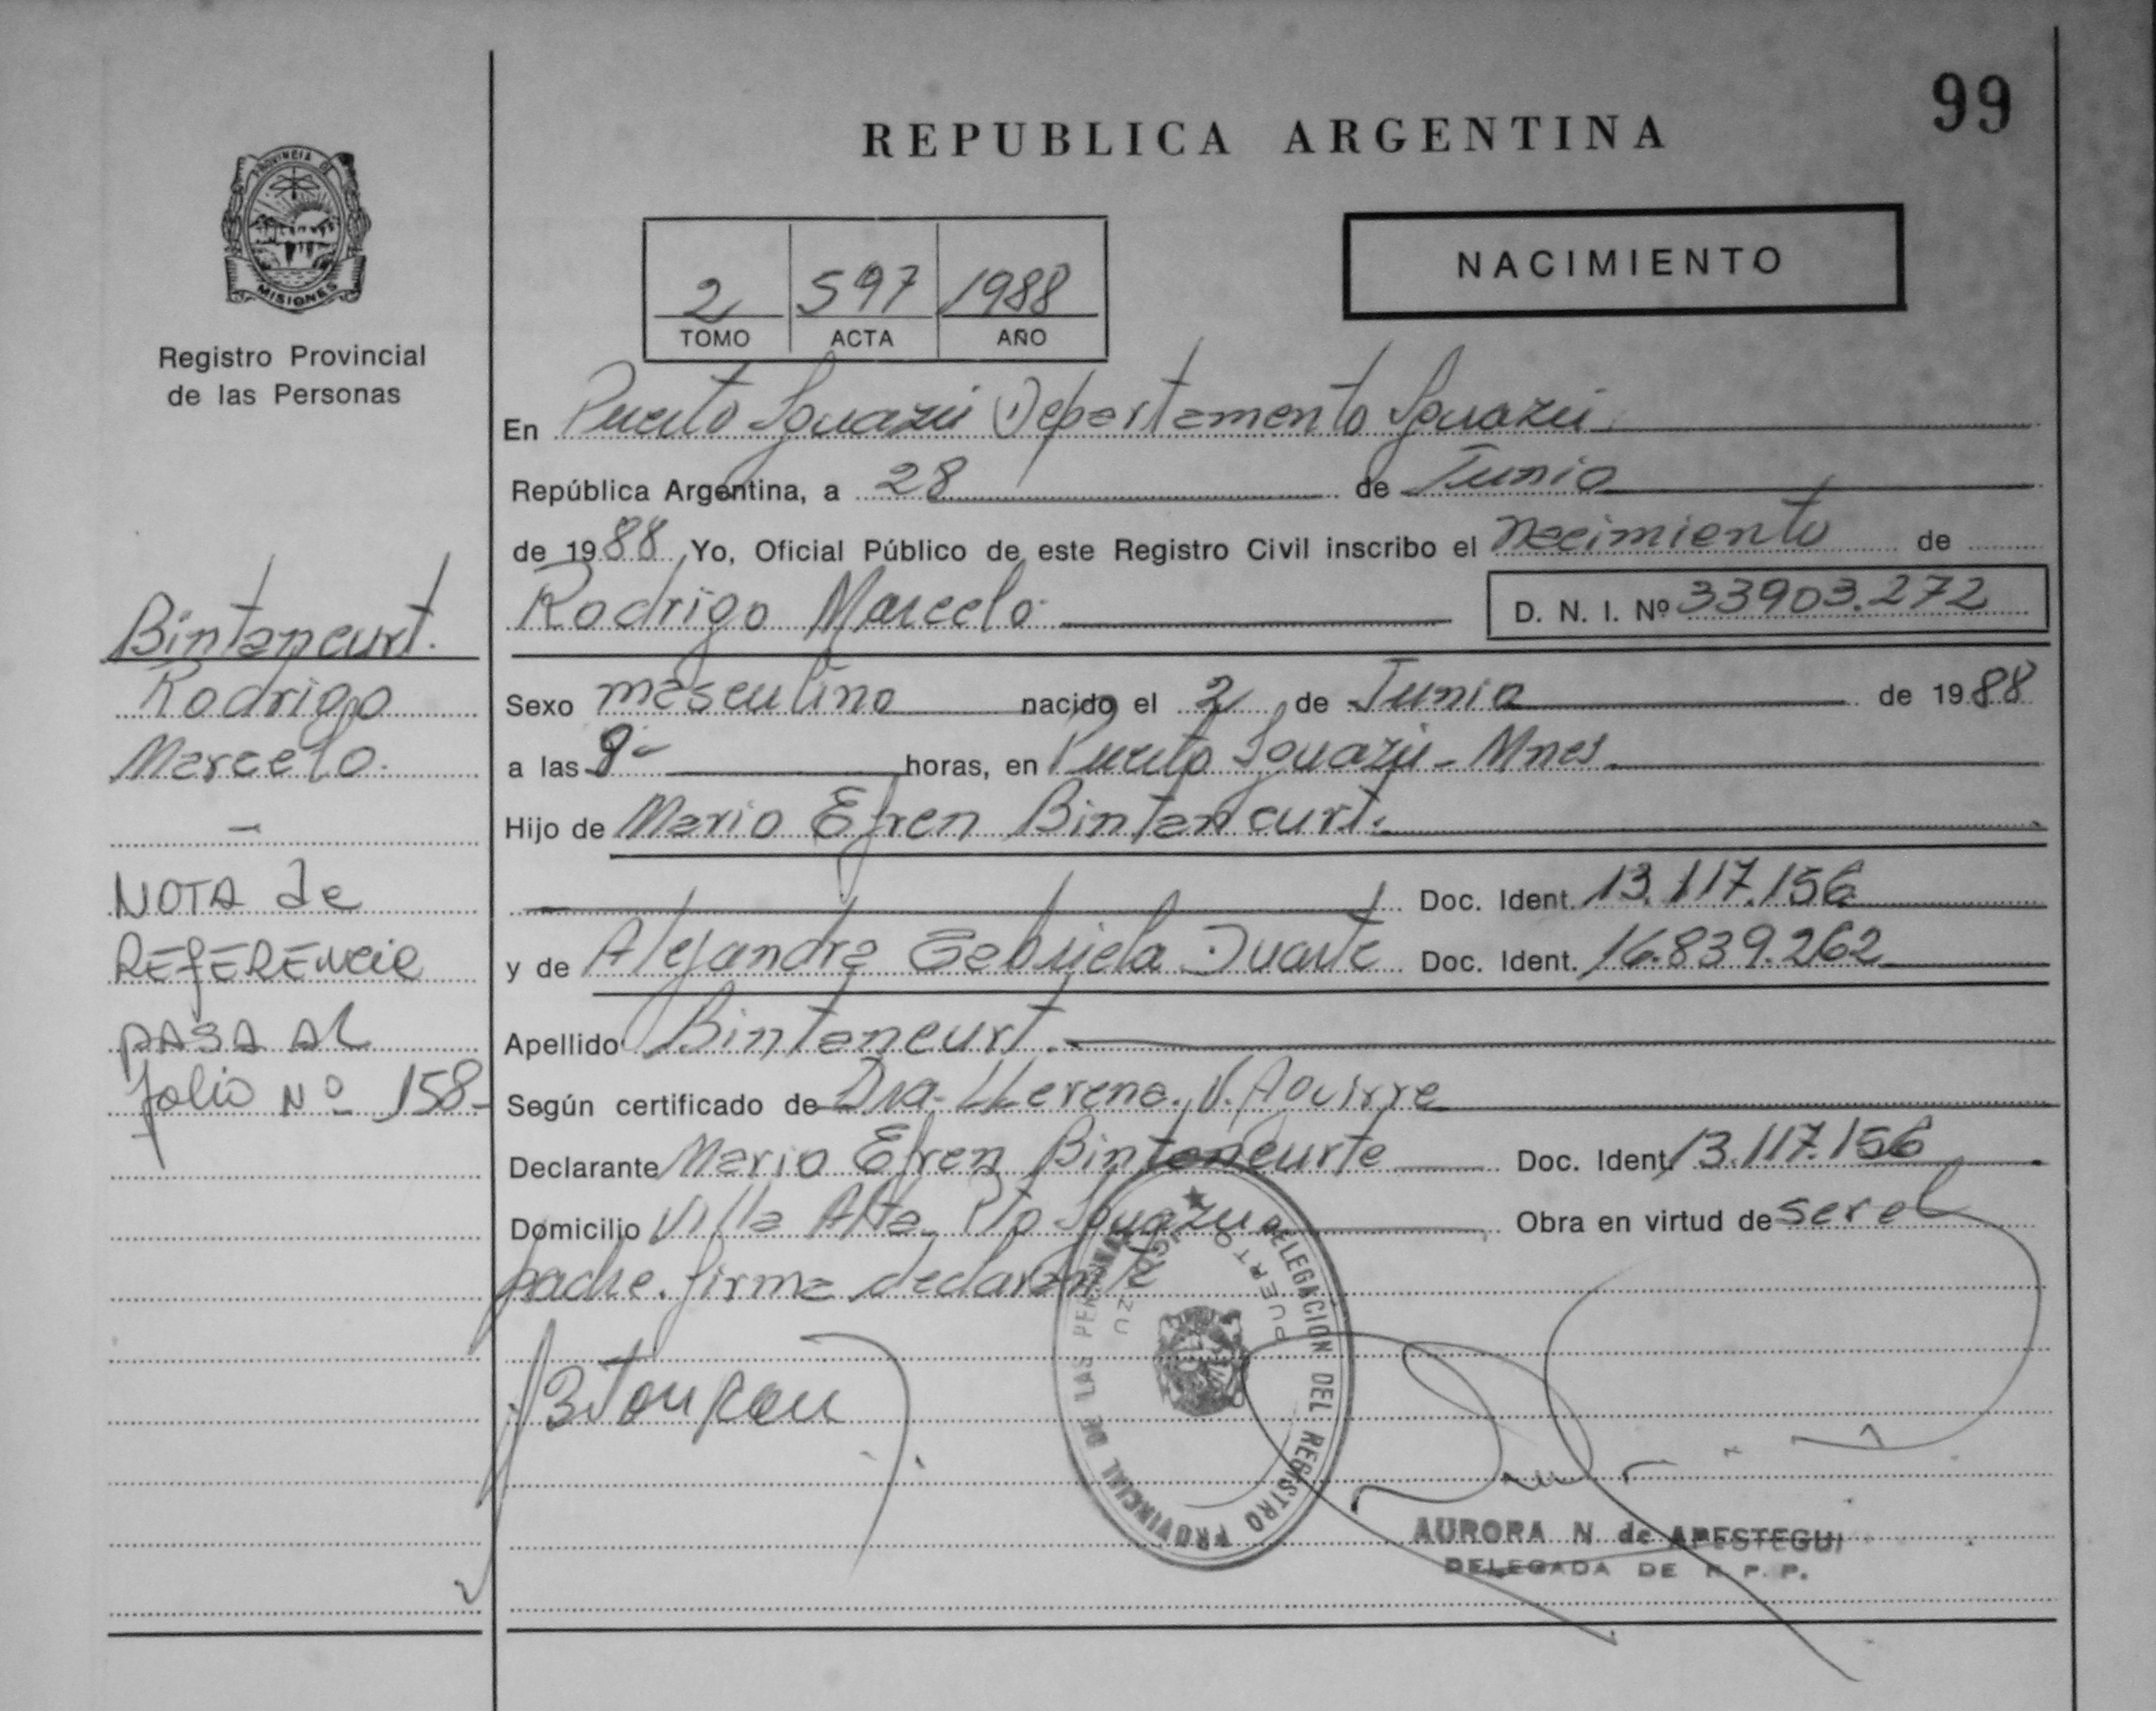 99
REPUBLICA ARGENTINA
PROVINCIA DE
MISIONES
Registro Provincial
de las Personas
2 597 1988
TOMO ACTA AÑO
NACIMIENTO
En Puerto Iguazú Departamento Iguazú
República Argentina, a 28 de Junio
de 1988 Yo, Oficial Público de este Registro Civil inscribo el nacimiento de
Rodrigo Marcelo D. N. I. Nº 33903.272
Bintancurt.
Rodrigo
Marcelo.
NOTA de
REFERENCIA
PASA AL
folio Nº 158-
Sexo masculino nacido el 2 de Junio de 1988
a las 9- horas, en Puerto Iguazú - Mnes.
Hijo de Mario Efren Bintancurt.
Doc. Ident. 13.117.156
y de Alejandra Gabriela Duarte Doc. Ident. 16.839.262
Apellido Bintancurt.
Según certificado de Dra. LLerena. V. Aguirre
Declarante Mario Efren Bintancurte Doc. Ident. 13.117.156
Domicilio Villa Alta Pto Iguazu Obra en virtud de ser el
padre. firma declarante
DELEGACION DEL REGISTRO PROVINCIAL DE LAS PERSONAS
PUERTO IGUAZU
AURORA N de APESTEGUI
DELEGADA DE R. P. P.